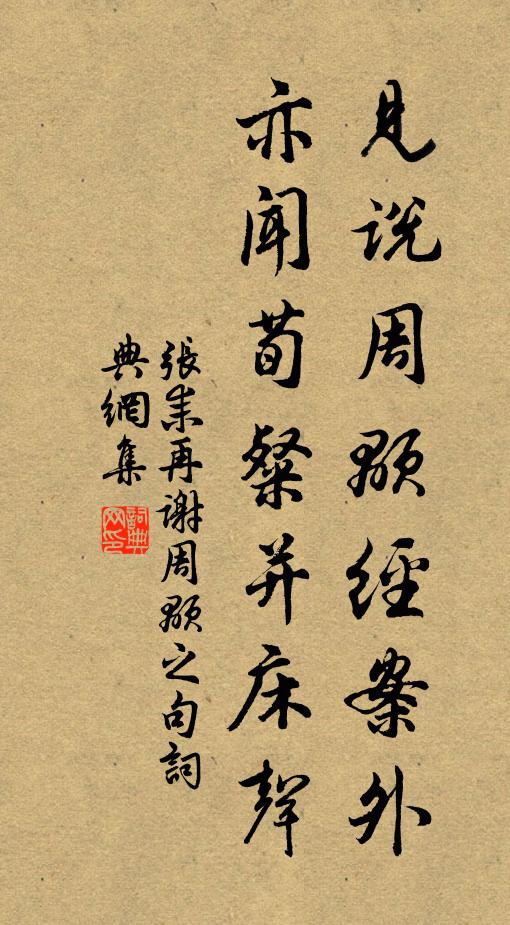 見說周顒經案外
亦聞荀粲并床聲
張耒再謝周顒之句詞
典網集
詞典網印